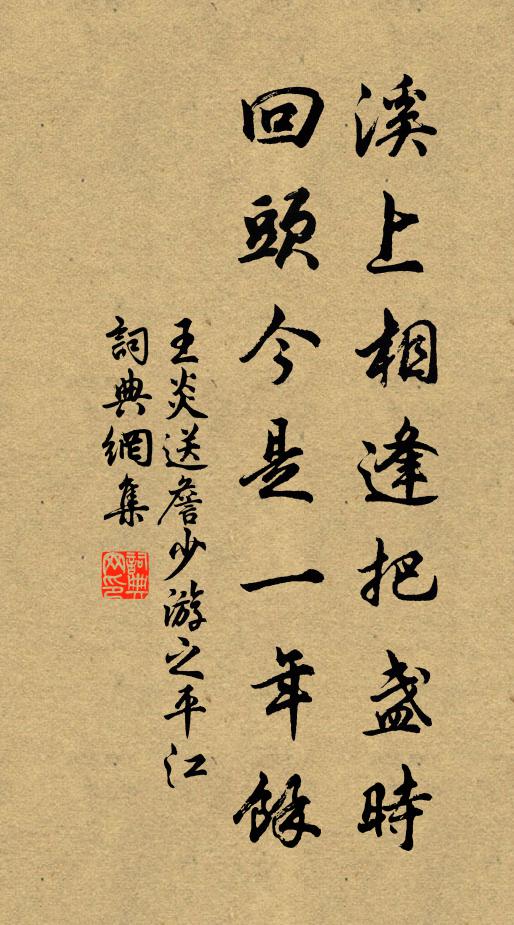 溪上相逢把盞時
回頭今是一年餘
王炎送詹少游之平江
詞典網集
詞典網印